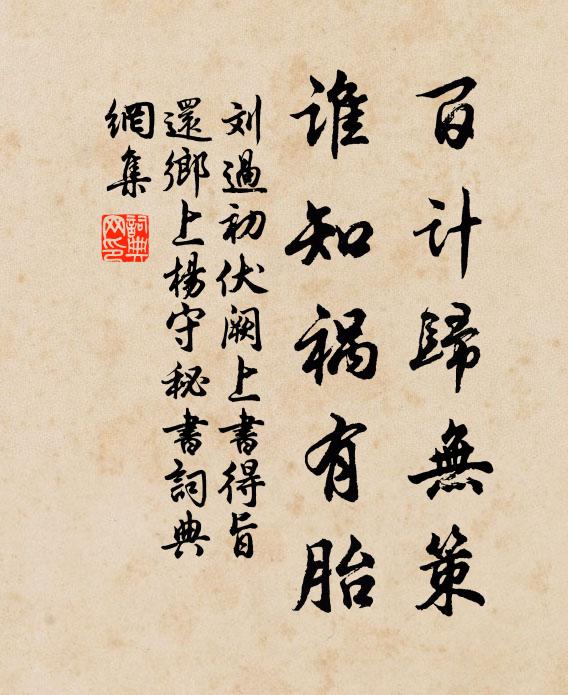 百计歸無策
谁知祸有胎
刘過初伏阙上書得旨
還鄉上楊守秘書詞典
網集
詞典网印